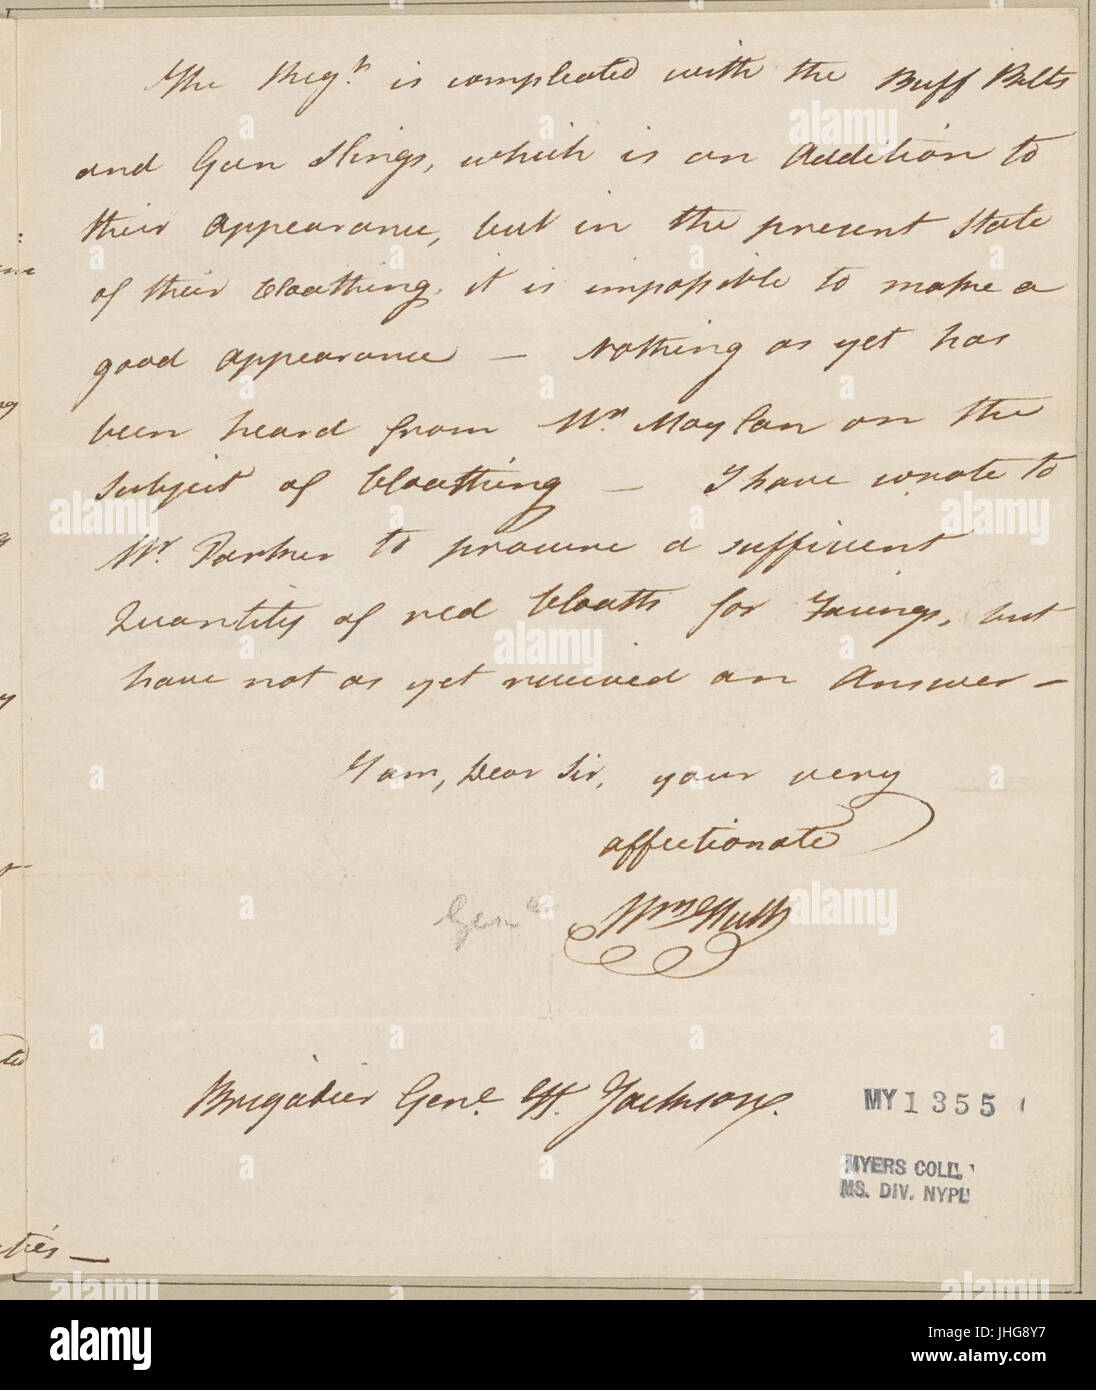 The Regt is compleated with the Buff Belts
and Gun Slings, which is an Addition to
their Appearance, but in the present State
of their Cloathing, it is impossible to make a
good appearance — Nothing as yet has
been heard from Mr. Moylan on the
Subject of Cloathing — I have wrote to
Mr. Parker to procure a sufficient
Quantity of red Cloath for Facings, but
have not as yet received an Answer —
I am, Dear Sir, your very
affectionate
Wm Hull
Genl
Brigadier Genl. H. Jackson.
MY 1355
MYERS COLL.
MS. DIV. NYPL
alamy
a
Image ID: JHG8Y7
www.alamy.com